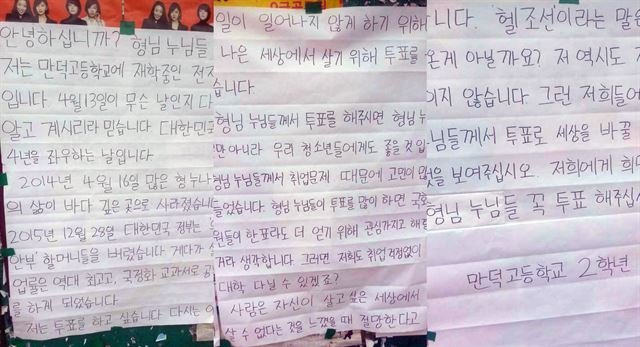 안녕하십니까? 형님 누님들
저는 만덕고등학교에 재학중인
입니다. 4월13일이 무슨 날인지 다
알고 계시리라 믿습니다. 대한민국
4년을 좌우하는 날입니다.
2014년 4월 16일 많은 형누나
의 삶이 바다 깊은 곳으로 사라졌습니
2015년 12월 28일 대한민국 정부는
안부' 할머니들을 버렸습니다. 게다가
업률은 역대 최고고, 국정화 교과서로
를 하게 되었습니다.
저는 투표를 하고 싶습니다. 다시는 이
일이 일어나지 않게 하기 위해
나은 세상에서 살기 위해 투표를
습니다.
형님 누님들께서 투표를 해주시면 형님 누
만 아니라 우리 청소년들에게도 좋을 것 입
형님 누님들께서 취업문제 때문에 고민이 많
들었습니다. 형님 누님들이 투표를 많이 하면 국회
원들이 한 표라도 더 얻기 위해 관심가지고 해결
거라 생각합니다. 그러면 저희도 취업 걱정없이
대학 다닐 수 있겠죠?
사람은 자신이 살고 싶은 세상에서
살 수 없다는 것을 느꼈을 때 절망한다고
니다. '헬조선'이라는 말
온게 아닐까요? 저 역시도
이지 않습니다. 그런 저희들에
님들께서 투표로 세상을 바꿀
것을 보여주십시오. 저희에게 희
형님 누님들 꼭 투표 해주십
만덕고등학교 2학년